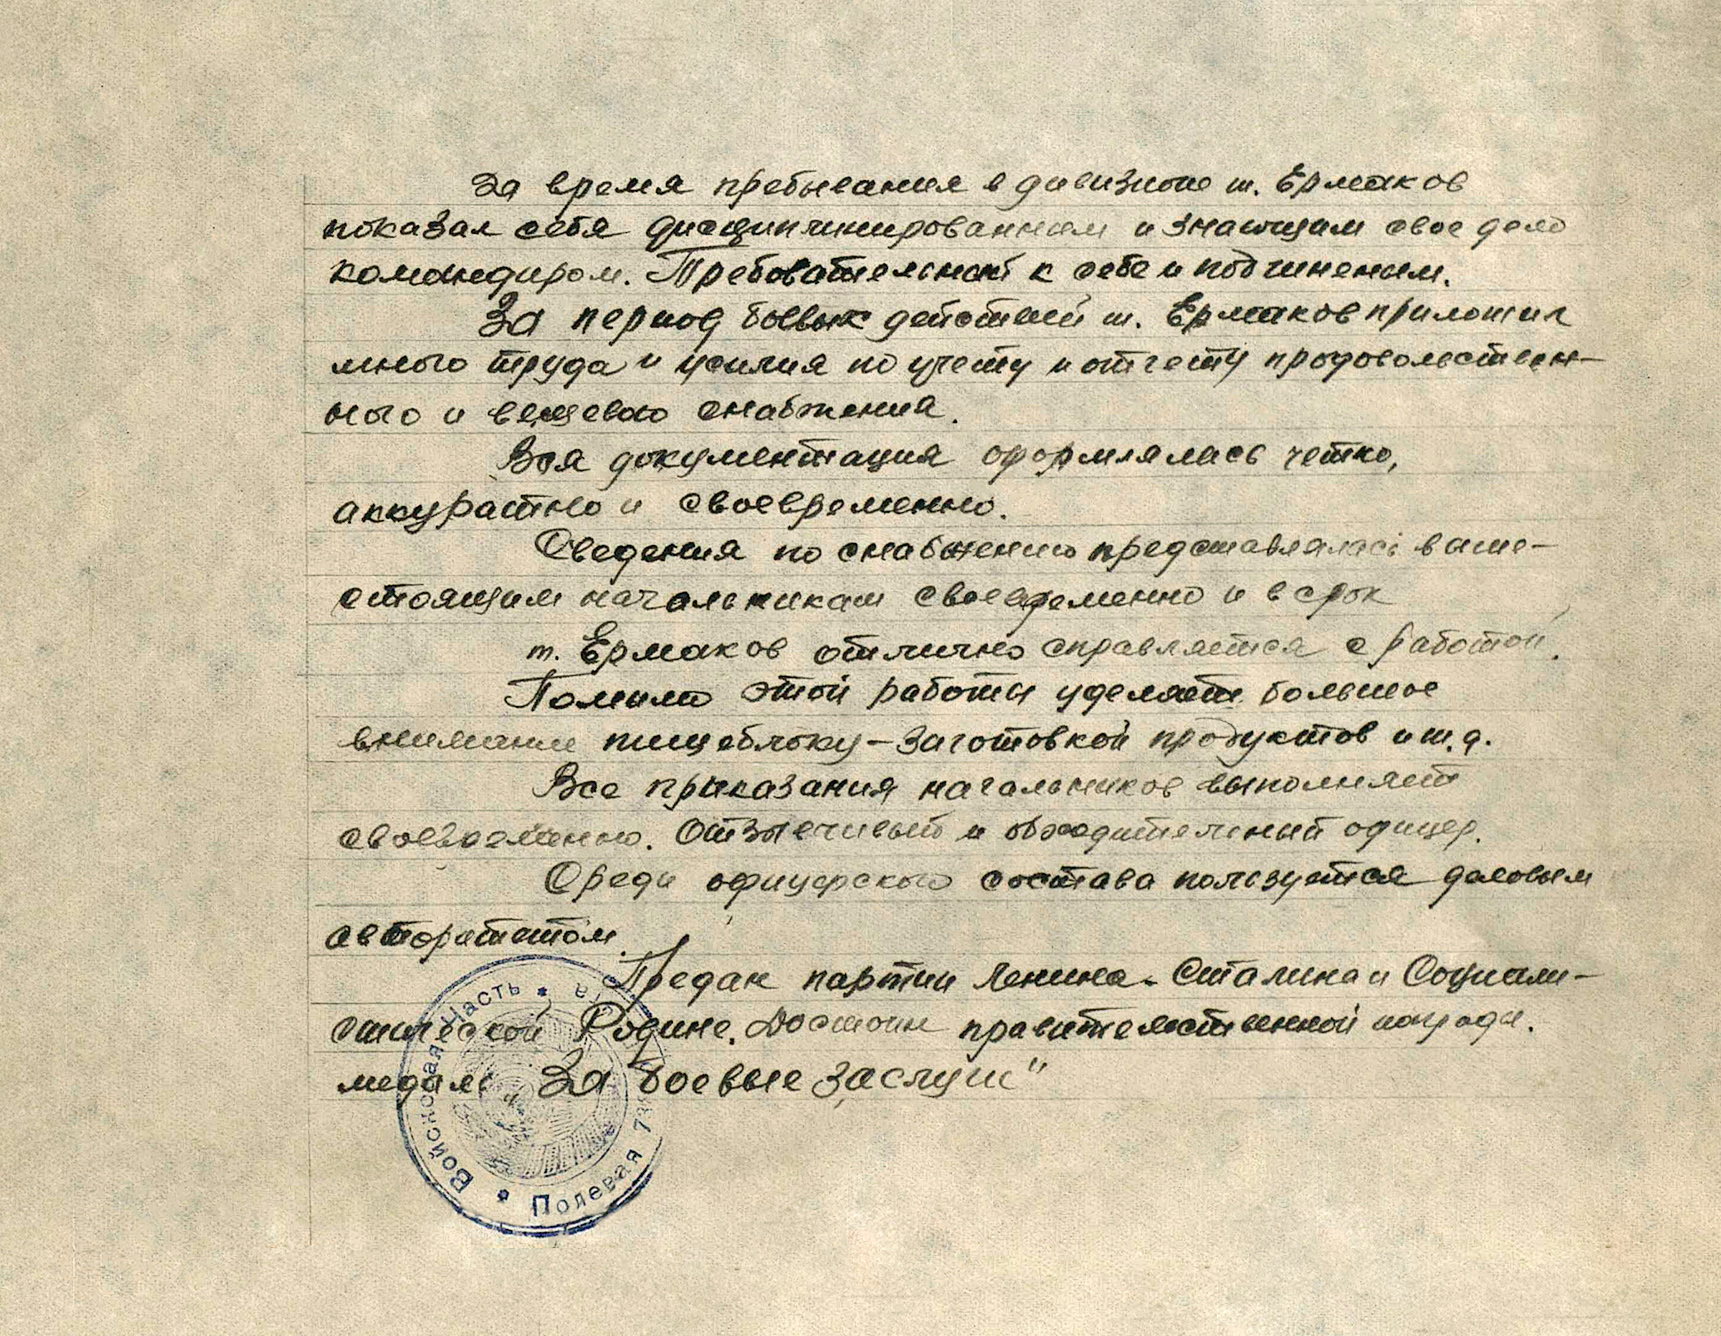 За время пребывания в дивизионе т. Ермаков
показал себя дисциплинированным и знающим свое дело
командиром. Требовательный к себе и подчиненым.
За период боевых действий т. Ермаков приложил
много труда и усилия по учету и отчету продовольствен-
ного и вещевого снабжения.
Вся документация оформлялась четко,
аккуратно и своевременно.
Сведения по снабжению представлялась выше-
стоящим начальникам своевременно и в срок
т. Ермаков отлично справляется с работой.
Помимо этой работы уделяет большое
внимание пищеблоку – заготовкой продуктов и т.д.
Все приказания начальников выполняет
своевременно. Отзывчивый и обходительный офицер.
Среди офицерского состава пользуется деловым
авторитетом.
Предан партии Ленина-Сталина и Социали-
стической Родине. Достоин правительственной награды.
медаль „За боевые заслуги"
Войсковая Часть * Полевая